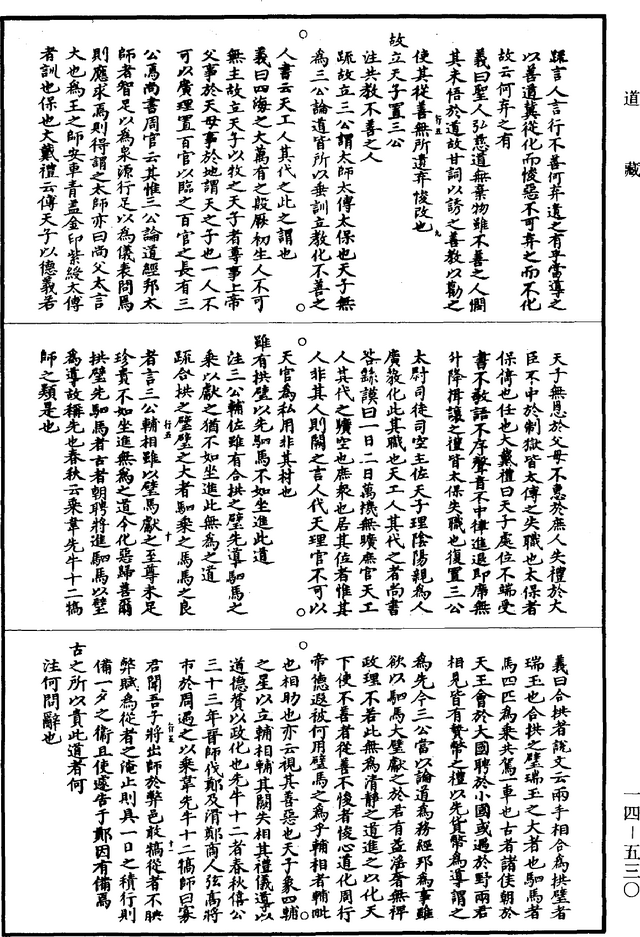 道藏
疏言人言行不善何弃遺之有乎當導之
以善道冀從化而悛惡不可弃之而不化
故云何弃之有
義曰聖人弘慈道無棄物雖不善之人間
其未悟於道故甘詞以誘之善教以勸之
使其從善無所遺弃悛改也
故立天子置三公
注共教不善之人
疏故立三公謂太師太傅太保也天子無
為三公論道皆所以垂訓立教化不善之
人書云天工人其代之此之謂也
義曰四海之大萬有之般厥初生人不可
無主故立天子以牧之天子者尊事上帝
父事於天母事於地謂天之子也一人不
可以廣理置百官以臨之百官之長有三
公焉尚書周官云其惟三公論道經邦太
師者智足以為泉源行足以為儀表問焉
則應求焉則得謂之太師亦曰尚父太言
大也為王之師安車青蓋金印紫綬太傅
者訓也保也大戴禮云傅天子以德義若
天子無恩於父母不惠於庶人失禮於大
臣不中於制獄皆太傅之失職也太保者
保倚也任也大戴禮曰天子處位不端受
書不敬語不序聲音不中律進退即席無
升降揖讓之禮皆太保失職也復置三公
太尉司徒司空主佐天子理陰陽親為人
廣敎化此其職也天工人其代之者尚書
咎繇謨曰一日二日萬機無曠庶官天工
人其代之曠空也庶衆也居其位者惟其
人非其人則闕之言人代天理官不可以
天官為私用非其材也
雖有拱璧以先駟馬不如坐進此道
注三公輔佐雖有合拱之璧先導駟馬之
乘以獻之猶不如坐進此無為之道
疏合拱之璧璧之大者駟乘之馬馬之良
者言三公輔相雖以璧馬獻之至尊未足
珍貴不如坐進無為之道令化惡歸善爾
拱璧先駟馬者古者朝聘將進駟馬以璧
為導故稱先也春秋云乘韋先牛十二犒
師之類是也
義曰合拱者說文云兩手相合為拱璧者
瑞玉也合拱之璧瑞玉之大者也駟馬者
馬四匹為乘共駕一車也古者諸侯朝於
天王會於大國聘於小國或遇於野兩君
相見皆有贄幣之禮以先貨幣為導謂之
為先今三公當以論道為務經邦為事雖
欲以駟馬大璧獻之於君有益滛奢無裨
政理不若此無為清靜之道進之以化天
下使不善者從善不悛者悛心道化周行
帝德遐被何用璧馬之為乎輔相者輔毗
也相助也亦云視其善惡也天子象四輔
之星以立輔相輔其闕失相其禮儀導以
道德贊以政化也先牛十二者春秋僖公
三十三年晉師伐鄭及滑鄭商人弦高將
市於周遇之以乘韋先牛十二犒師曰寡
君聞吾子將出師於弊邑敢犒從者不腆
弊賦為從者之淹止則具一日之積行則
備一夕之衞且使遽告于鄭因有備焉
古之所以貴此道者何
注何問辭也
一四－五三〇